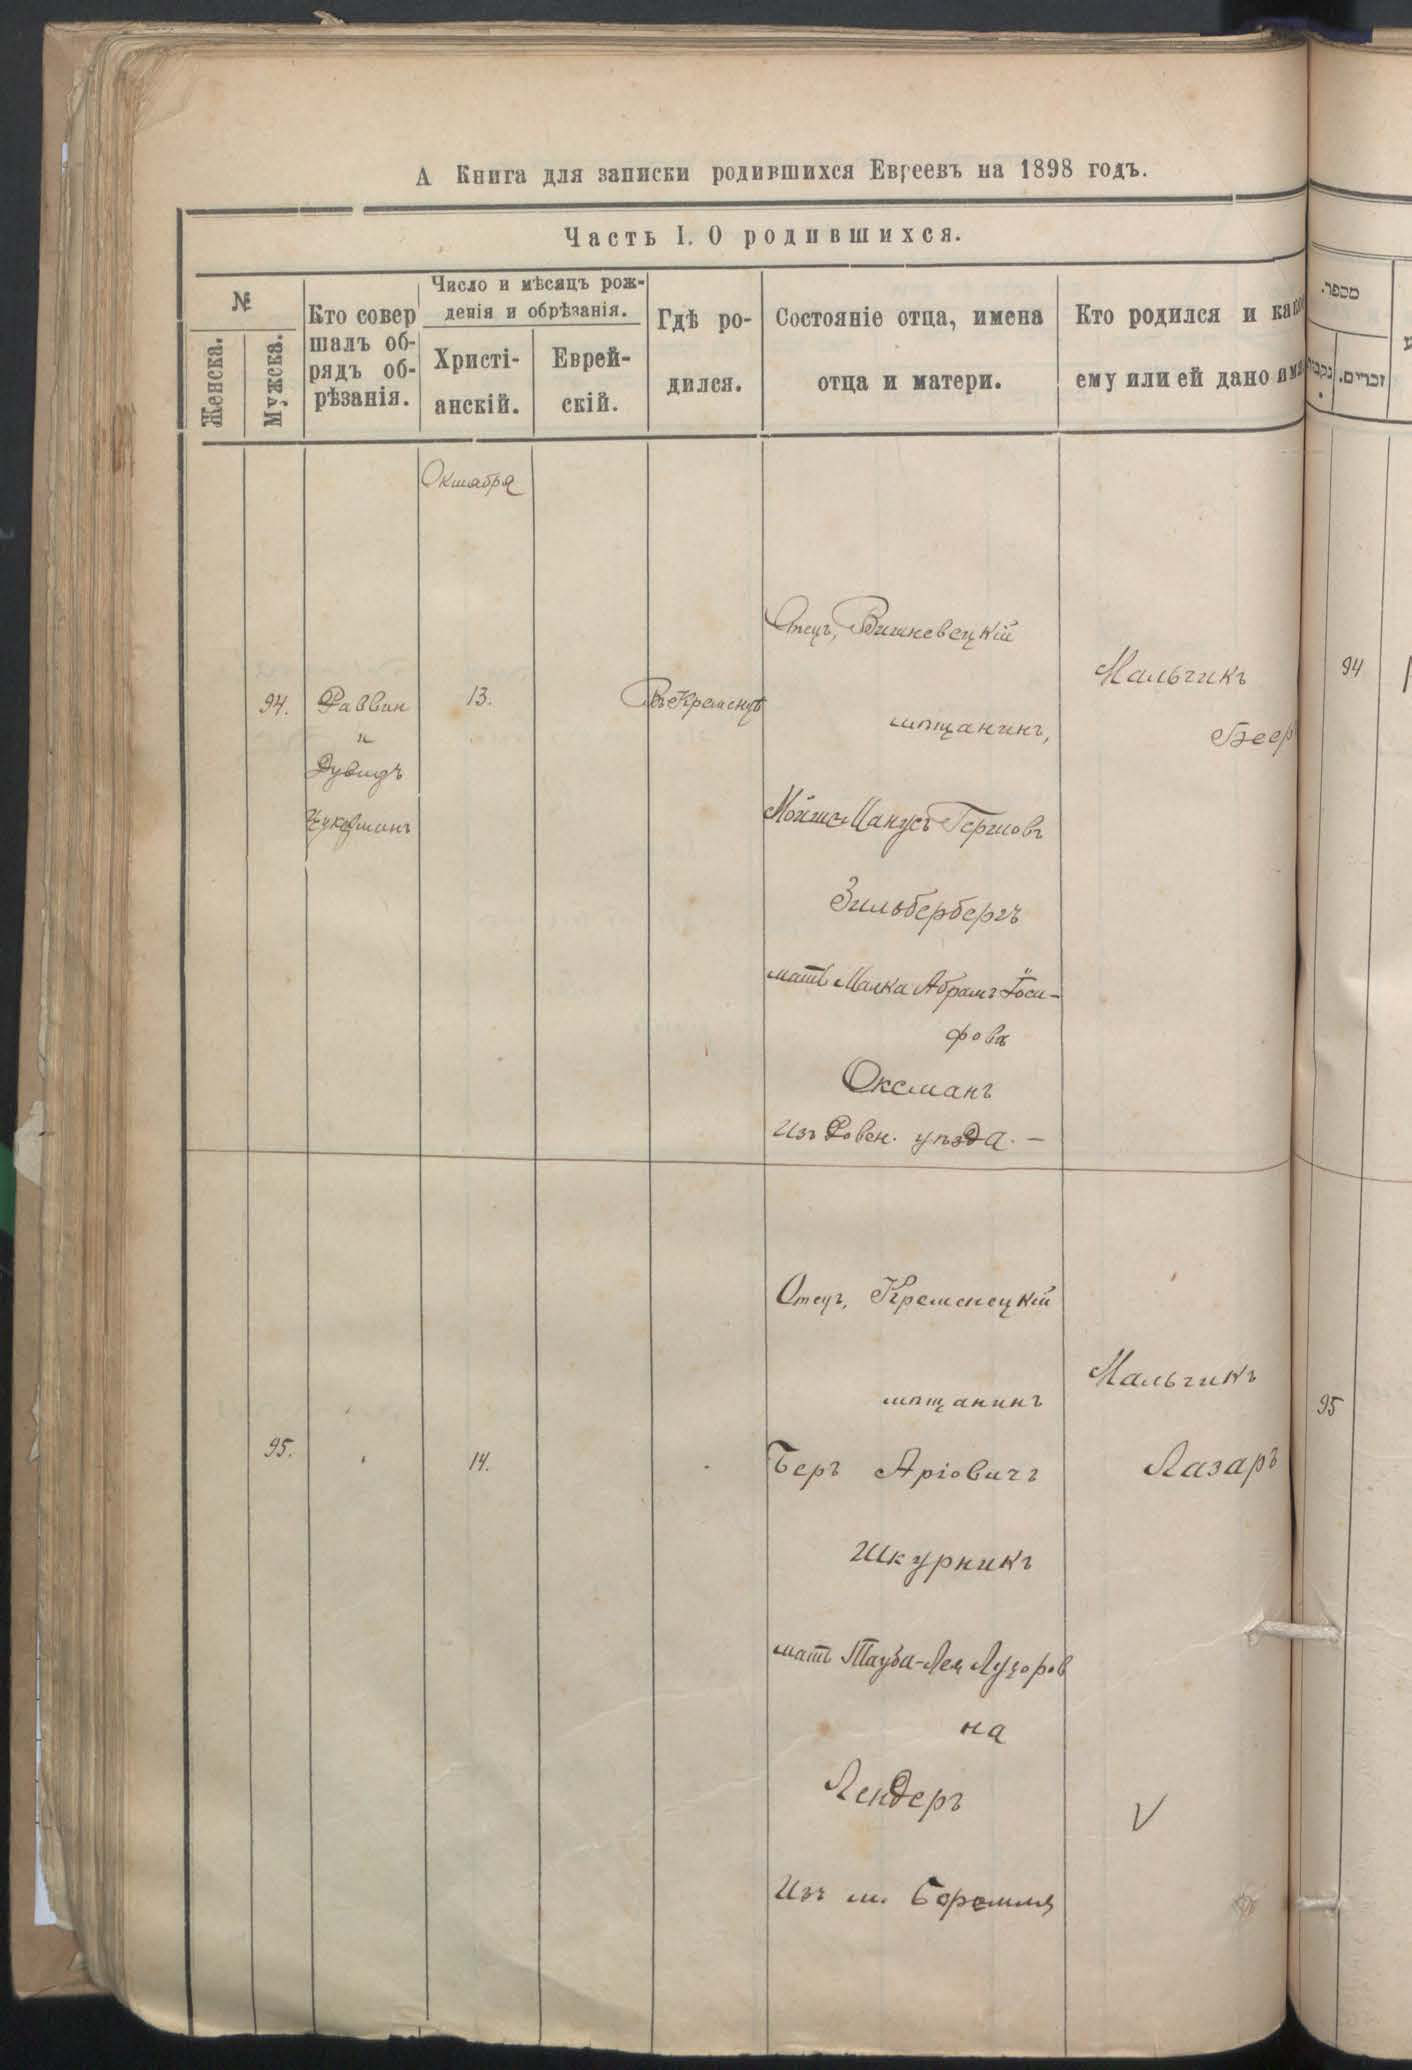 А Книга для записки родившихся Евреевъ на 1898 годъ.
Часть I. О родившихся.
№
Женска.
Мужска.
Кто совер
шалъ об-
рядъ об-
рѣзанія.
Число и мѣсяцъ рож-
денія и обрѣзанія.
Христі-
анскій.
Еврей-
скій.
Гдѣ ро-
дился.
Состояніе отца, имена
отца и матери.
Кто родился и како
ему или ей дано има
מספר.
זכרים.
Октября
94.
Раввин
и
Дувидъ
13.
Въ Кременцѣ
Отецъ, Вишневецкій
мѣщанинъ,
Мойше Манусъ Гершовъ
Зильбербергъ
мать Малка Абрамъ Іоси-
фова
Оксманъ
Изъ Ровен. уѣзда. —
Мальчикъ
Беер
94
95.
14.
Отецъ, Кременецкій
мѣщанинъ
Беръ Аріовичъ
Шкурникъ
мать Тауба-Лея
на
Лендеръ
Изъ м. Боремля
Мальчикъ
Лазаръ
95